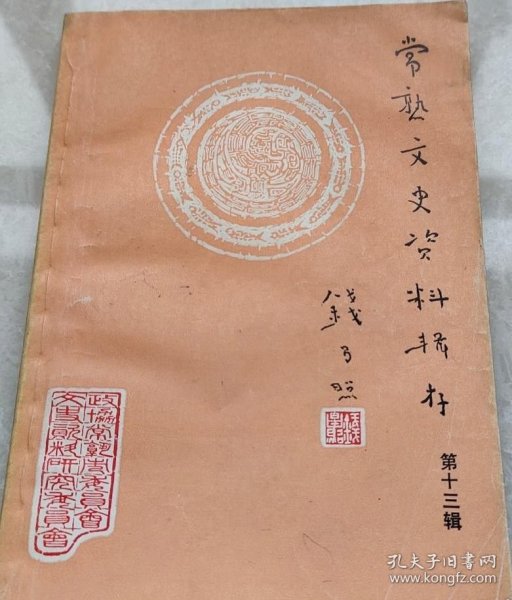 常熟文史资料辑存
錢昌照
第十三辑
政協常熟市委員會
文史資料研究委員會
孔夫子旧书网
www.kongfz.com